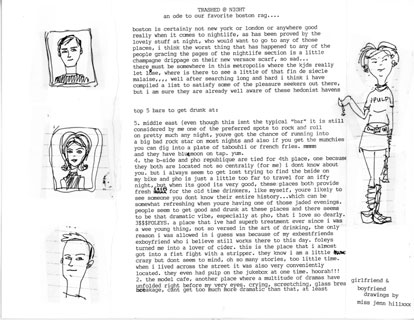 TRASHED @ NIGHT
an ode to our favorite boston rag....
boston is certainly not new york or london or anywhere good
really when it comes to nightlife, as has been proved by the
lovely stuff at night. who would want to go to any of those
places, i think the worst thing that has happened to any of the
people gracing the pages of the nightlife section is a little
champagne drippage on their new versace scarf, so sad...
there must be somewhere in this metropolis where the kids really
let loose, where is there to see a little of that fin de siecle
malaise.... well after searching long and hard i think i have
compiled a list to satisfy some of the pleasure seekers out there,
but i am sure they are already well aware of these hedonist havens
top 5 bars to get drunk at:
5. middle east (even though this isnt the typical "bar" it is still
considered by me one of the preferred spots to rock and roll
on pretty much any night. youve got the chance of running into
a big bad rock star on most nights and also if you get the munchies
you can dig into a plate of tabouhli or french fries. mmmm
and they have big moon on tap. yum.
4. the b-side and pho republique are tied for 4th place, one because
they both are located not so centrally (for me) i dont know about
you. but i always seem to get lost trying to find the bside on
my bike and pho is just a little too far to travel for an iffy
night, but when its good its very good, these places both provide
fresh for the old time drinkers, like myself, youre likely to
see someone you dont know their entire history...which can be
somewhat refreshing when youre having one of those jaded evenings.
people seem to get good and drunk at these places and there seems
to be that dramatic vibe, especially at pho, that i love so dearly.
FOLEYS. a place that ive had superb treatment ever since i was
a wee young thing, not so versed in the art of drinking, the only
reason i was allowed in i guess was because of my exbestfriends
exboyfriend who i believe still works there to this day, foleys
turned me into a lover of cide. this is the place that i almost
got into a fist fight with a stripper. they know i am a little
crazy but dont seem to mind, oh so many stories, too little time.
when i lived across the street it was also very conveniently
located. they even had pulp on the jukebox at one time. hoorah!!!
2. the model cafe. another place where a multitude of dramas have
unfolded right before my very eyes. crying, screetching, glass
breakage, cant get too much more dramatic than that, at least
PULP
girlfriend &
boyfriend
drawings by
miss jenn hillixxx